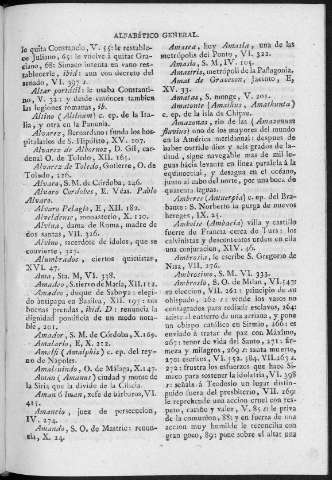 ALFABÉTICO GENERAL.
le quita Constancio, V. 55: le restablece
Juliano, 65: le vuelve á quitar Graciano,
68: Simaco intenta en vano restablecerle,
ibid: una con decreto del
senado, VI. 397
Altar portátil: le usaba Constantino,
V. 321 y desde entónces tambien
las legiones romanas, ib.
Altino (Altinum) c. ep. de la Italia,
y otra en la Panonia.
Alvarez, Bernardino: funda los hospitalarios
de S. Hipólito, XV. 207.
Alvarez de Albornoz, D. Gil, cardenal
O. de Toledo, XII. 165.
Alvarez de Toledo, Gotierre, O. de
Toledo, 126.
Alvaro, S. M. de Córdoba, 246.
Alvaro Cordobes, E. Véas. Pablo
Alvaro.
Alvaro Pelagio, E, XII. 182.
Alveldense, monasterio, X. 120.
Alvina, dama de Roma, madre de
dos santas, VII. 326.
Alvino, sacerdote de ídolos, que se
convierte, 321.
Alumbrados, ciertos quietistas,
XVI. 47.
Ama, Sta. M, VI. 338.
Amadeo, S. siervo de María, XII. 112.
Amadeo, duque de Saboya: elegido
antipapa en Basilea, XII. 195: sus
buenas prendas, ibid. D: renuncia la
dignidad pontificia de un modo notable,
201.
Amador, S. M. de Córdoba, X. 169.
Amalario, E, X. 212.
Amalfi (Amalphis) c. ep. del reyno
de Nápoles.
Amalsuindo, O. de Málaga, X. 147.
Aman (Amanus) ciudad y monte de
la Siria que la divide de la Cilicia.
Aman ó Iman, xefe de túrburos, VI.
415.
Amancio, juez de persecucion,
IV. 274.
Amando, S. O. de Mastric: renuncia,
X. 24.
Amasea, hoy Amasia, una de las
metrópolis del Ponto, VI. 322.
Amasio, S. M, IV. 105.
Amastris, metrópoli de la Paflagonia.
Amat de Graveson, Jacinto, E,
XV. 33.
Amatas, S. monge, V. 201.
Amatonte (Amathus, Amathunta)
c. ep. de la isla de Chipre.
Amazonas, rio de las (Amazonum
fluvius) uno de los mayores del mundo
en la América meridional: despues de
haber corrido diez y seis grados de latitud,
sigue navegable mas de mil leguas
hácia levante en línea paralela á la
equinoccial, y desagua en el océano,
junto al cabo del norte, por una boca de
quarenta leguas.
Amberes (Antuerpia) c. ep. del Brabante:
S. Norberto la purga de nuevos
hereges, IX. 25.
Amboise (Ambacia) villa y castillo
fuerte de Francia cerca de Turs: los
calvinistas y descontentos urden en ella
una conjuracion, XIV. 46.
Ambrosia, le escribe S. Gregorio de
Nisa, VII. 276.
Ambrosino, S. M. VI. 333.
Ambrosio, S. O. de Milan, VI. 547:
su eleccion, VII. 261: principio de su
obispado, 262: vende los vasos no
consagrados para redimir esclavos, 264:
asiste al arriano de una arriano, y pone
un obispo católico en Sirmio, 266: es
enviado á tratar de paz con Máximo,
267: temor de vida del Santo, 271: firmeza
y milagros, 269: su santa muerte,
270: escritos, VI. 552, 384, VII. 263.
271: frustra los esfuerzos que hace Simaco
para sostener la idolatría, VI. 398
: señala á Teodosio un lugar distinguido
fuera del presbiterio, VII. 269:
le reprehende una accion cruel con respeto,
zarino y valer, V. 85: le priva
de la comunion, 88: y en fuerza de una
accion muy humilde le reconcilia con
gran gozo, 89: pone sobre el altar una